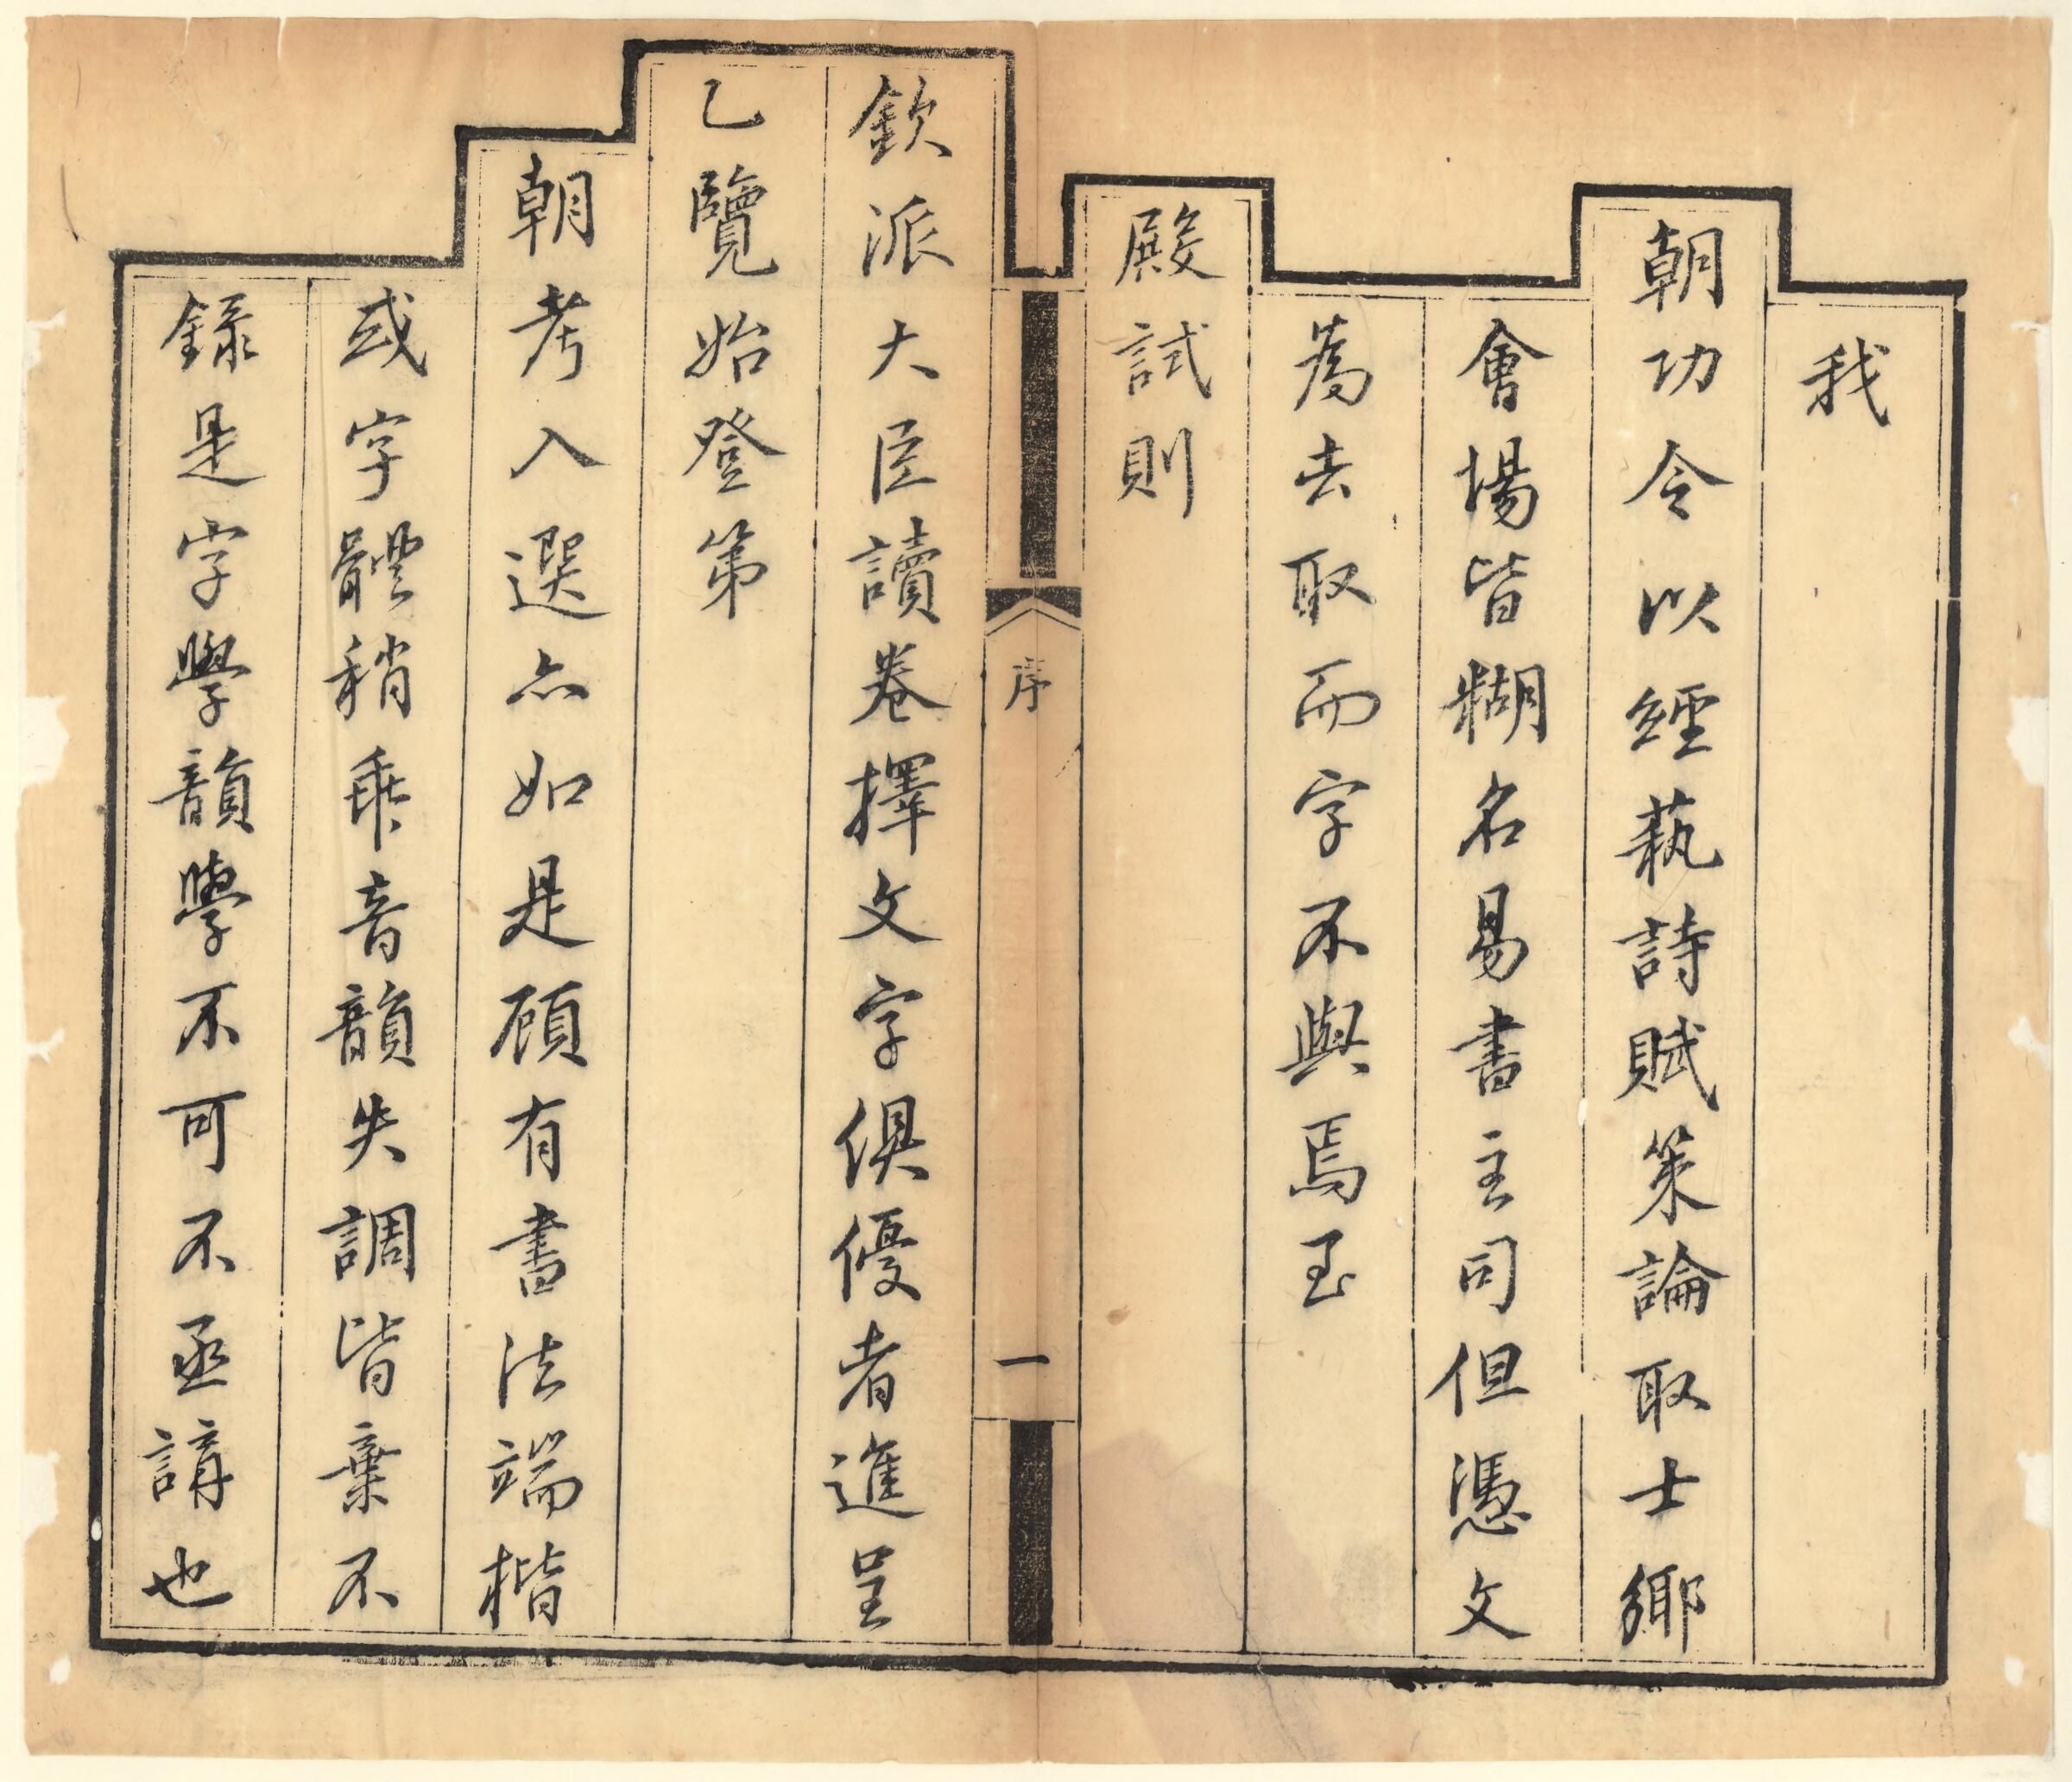 我
朝功令以經蓺詩賦策論取士鄉
會場皆糊名易書主司但憑文
為去取而字不與焉至
殿試則
序
一
欽派大臣讀卷擇文字俱優者進呈
乙覽始登第
朝考入選亦如是顧有書法端楷
或字體稍乖音韻失調皆棄不
錄是字學韻學不可不亟講也